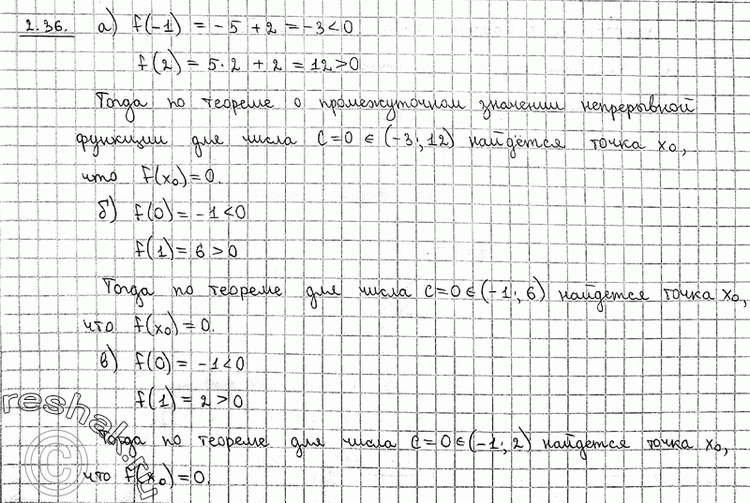 2.36. а) f(-1) = -5 + 2 = -3 < 0
f(2) = 5·2 + 2 = 12 > 0
Тогда по теореме о промежуточном значении непрерывной
функции для числа C=0 ∈ (-3; 12) найдётся точка x₀,
что f(x₀)=0.
б) f(0) = -1 < 0
f(1) = 6 > 0
Тогда по теореме для числа C=0 ∈ (-1; 6) найдется точка x₀,
что f(x₀) = 0.
в) f(0) = -1 < 0
f(1) = 2 > 0
reshak.ru
Тогда по теореме для числа C=0 ∈ (-1; 2) найдется точка x₀,
что f(x₀) = 0.
©